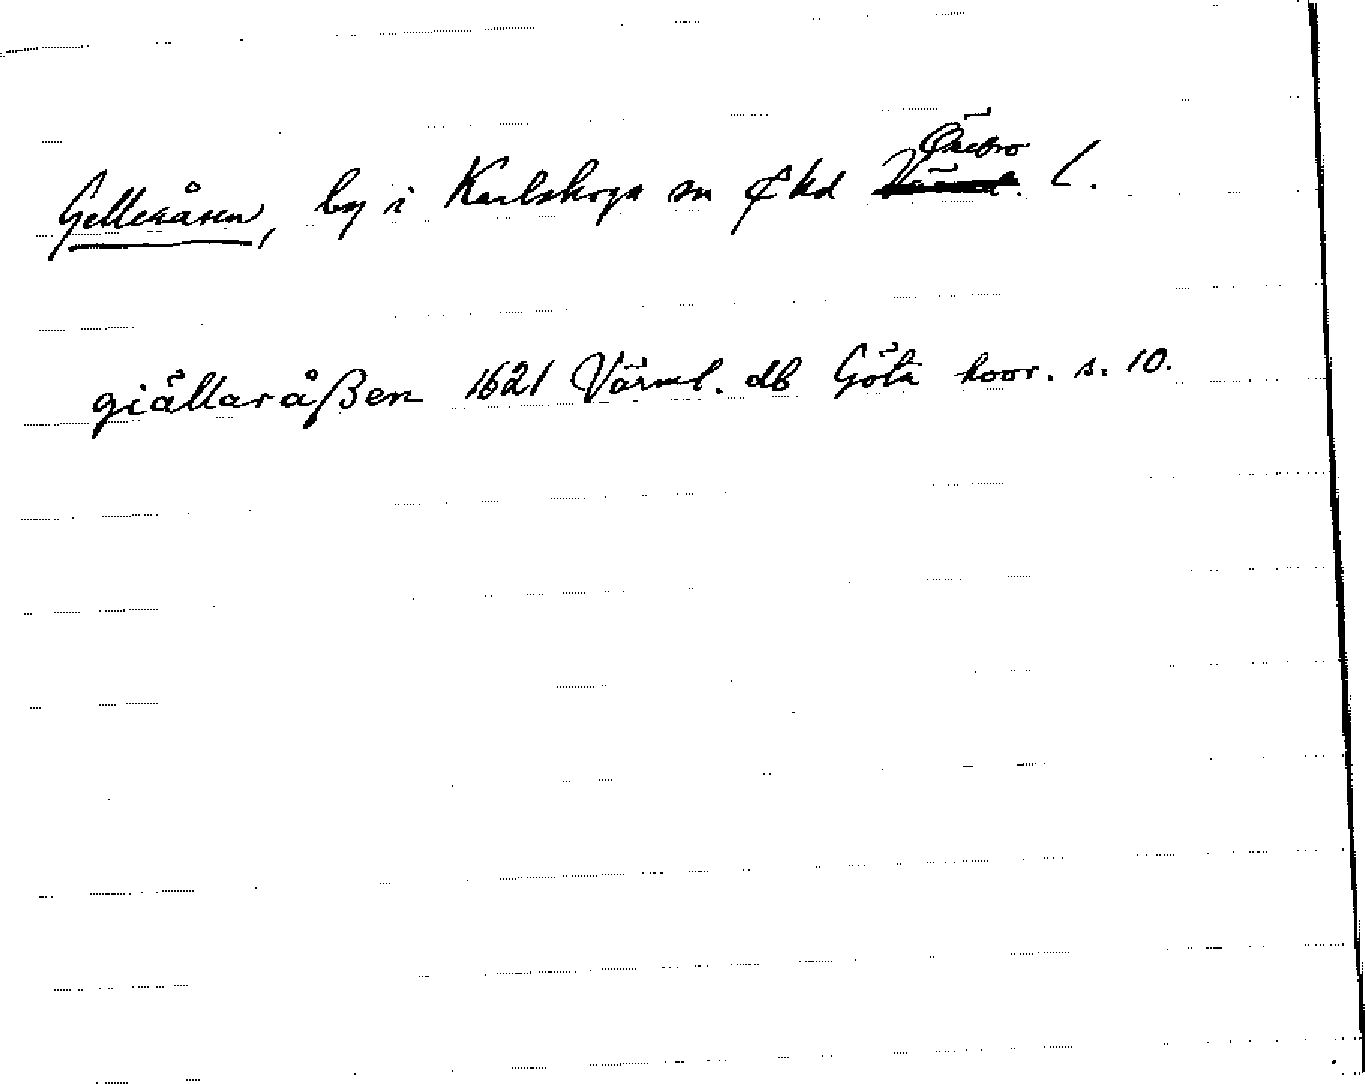 Gelleråsen, by i Karlskoga sn ₵hd Örebro l.
giällaråßen 1621 Värml. db Göta hovr. s. 10.